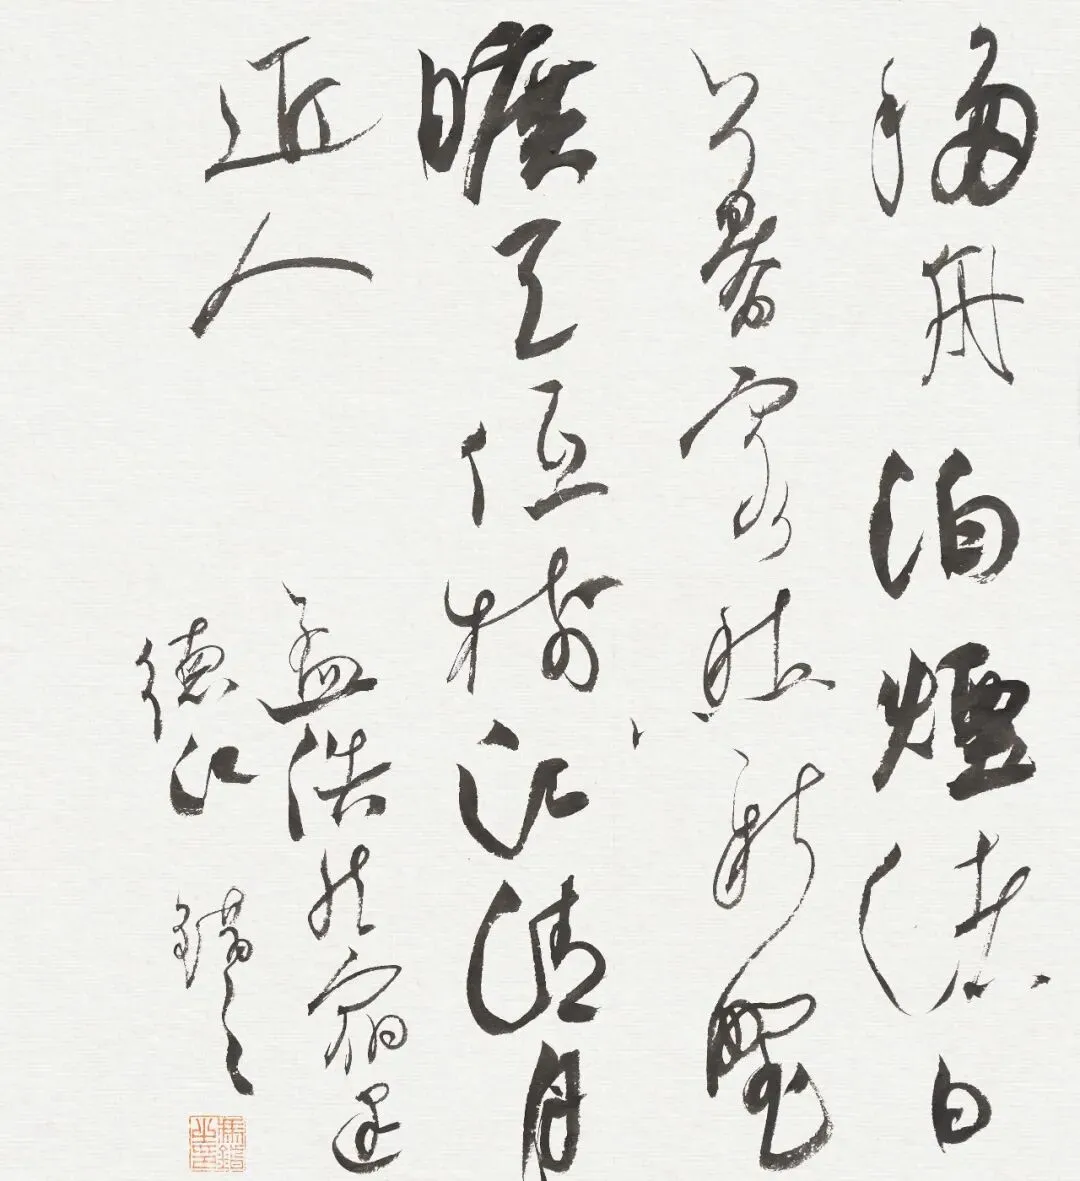 移舟泊煙渚日
暮客愁新野
曠天低樹江清月
近人
孟浩然宿建
德江